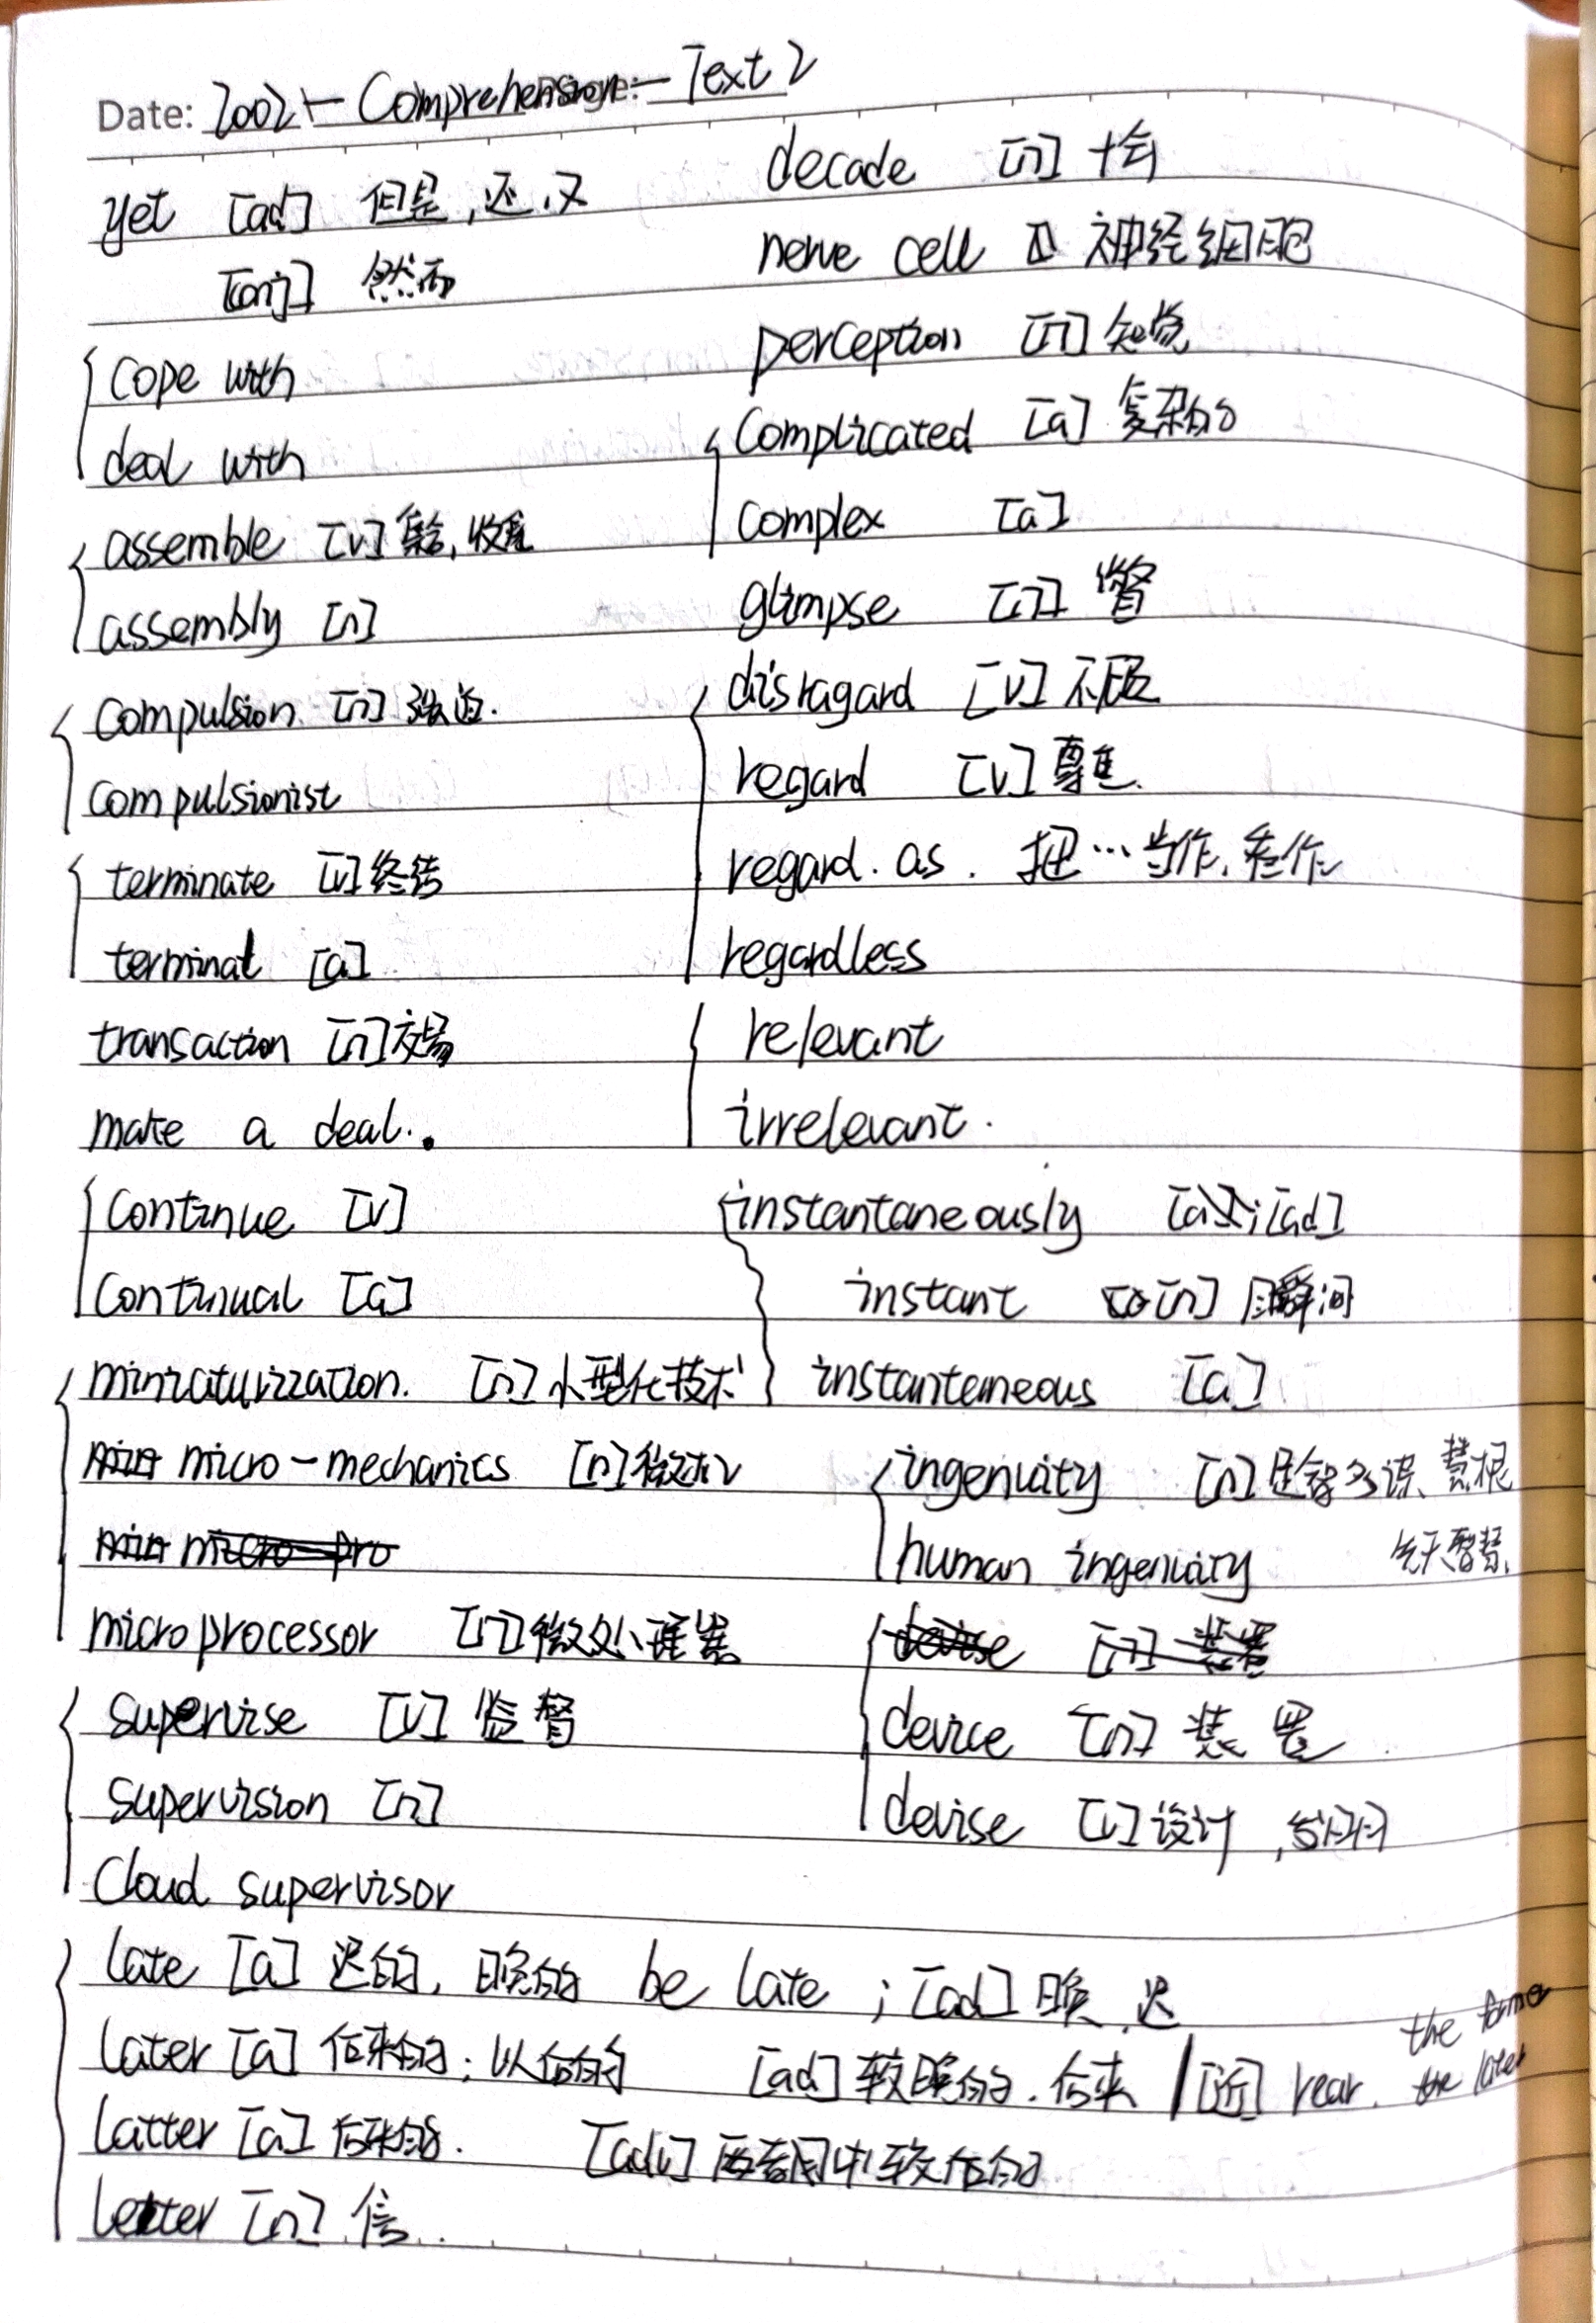 Date: 2002 — Comprehension — Text 2
yet [ad] 但是,还,又
[conj] 然而
cope with
deal with
assemble [v] 集合,收集
assembly [n]
compulsion [n] 强迫.
compulsionist
terminate [v] 终结
terminal [a]
transaction [n] 交易
make a deal.
continue [v]
continual [a]
miniaturization. [n] 小型化技术
micro-mechanics [n]
micro-pro
microprocessor [n] 微处理器
supervise [v] 监督
supervision [n]
Cloud supervisor
decade [n] 十年
nerve cell 神经细胞
perception [n] 知觉
complicated [a] 复杂的
complex [a]
glimpse [n] 瞥
disragard [v] 不顾
regard [v] 尊重.
regard. as. 把…当作,看作
regardless
relevant
irrelevant.
instantaneously [ad]
instant [n] 瞬间
instanteneous [a]
ingenuity [n] 足智多谋、慧根
human ingenuity 先天智慧
devise [n] 装置
device [n] 装置
devise [v] 设计,
late [a] 迟的,晚的 be late ; [ad] 晚,迟
later [a] 后来的;以后的 [ad] 较晚的.后来 / [近] rear. the former
the later
latter [a] 后来的. [adv] 两者中较后的
letter [n] 信.